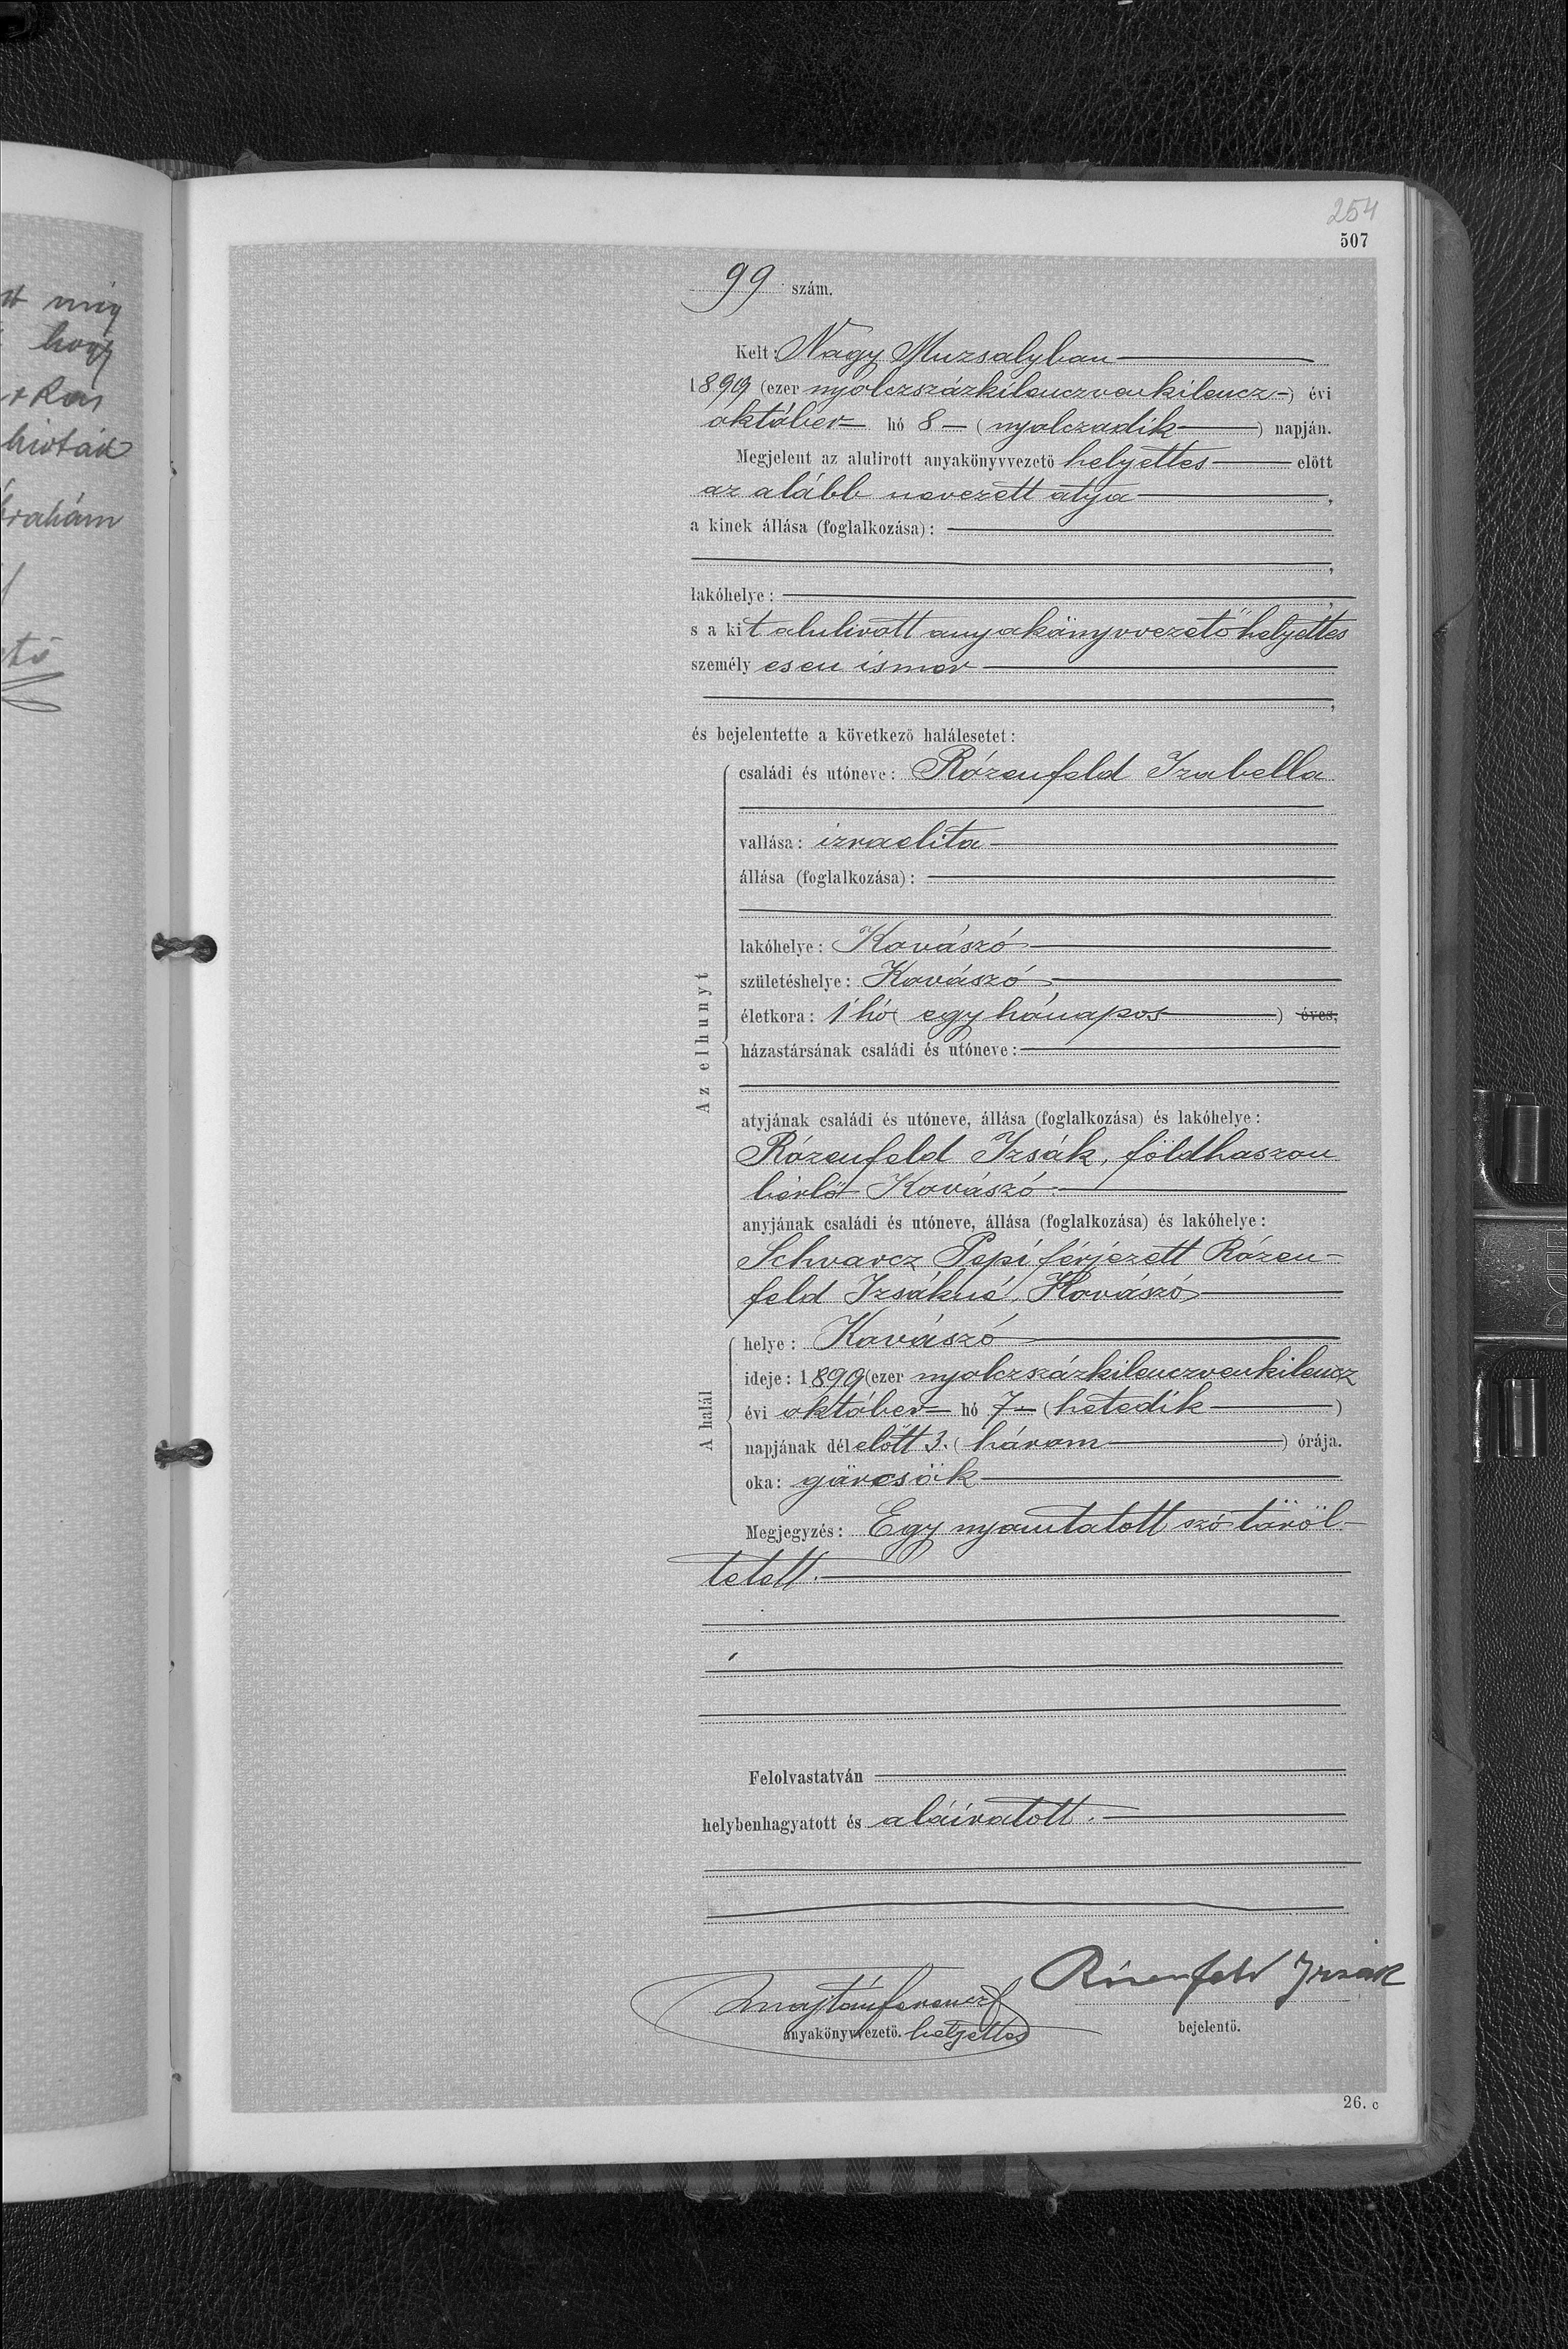 254
507
99 szám.
Kelt: Nagy Muzsalyban
1899 (ezer nyolczszázkilenczvenkilencz) évi
október hó 8 (nyolczadik) napján.
Megjelent az alulirott anyakönyvvezető helyettes előtt
az alább nevezett atyja,
a kinek állása (foglalkozása):
,
lakóhelye: ,
s a kit alulirott anyakönyvvezető helyettes
személyesen ismer
,
és bejelentette a következő halálesetet:
Az elhunyt
családi és utóneve: Rózenfeld Izabella
vallása: izraelita
állása (foglalkozása):
lakóhelye: Kovászó
születéshelye: Kovászó
életkora: 1 hó (egy hónapos) éves,
házastársának családi és utóneve:
atyjának családi és utóneve, állása (foglalkozása) és lakóhelye:
Rózenfeld Izsák, földhaszon
bérlő Kovászó.
anyjának családi és utóneve, állása (foglalkozása) és lakóhelye:
Schvarcz Pepi férjezett Rózen-
feld Izsákné, Kovászó
A halál
helye: Kovászó
ideje: 1899 (ezer nyolczszázkilenczvenkilencz
évi október hó 7 (hetedik)
napjának délelőtt 3. (három) órája.
oka: görcsök
Megjegyzés: Egy nyomtatott szó töröl-
tetett.
Felolvastatván
helybenhagyatott és aláiratott.
Rózenfeld Izsák
Majtán Ferencz
anyakönyvvezető. helyettes
bejelentő.
26. c
mig
hogy
hivták
brahám